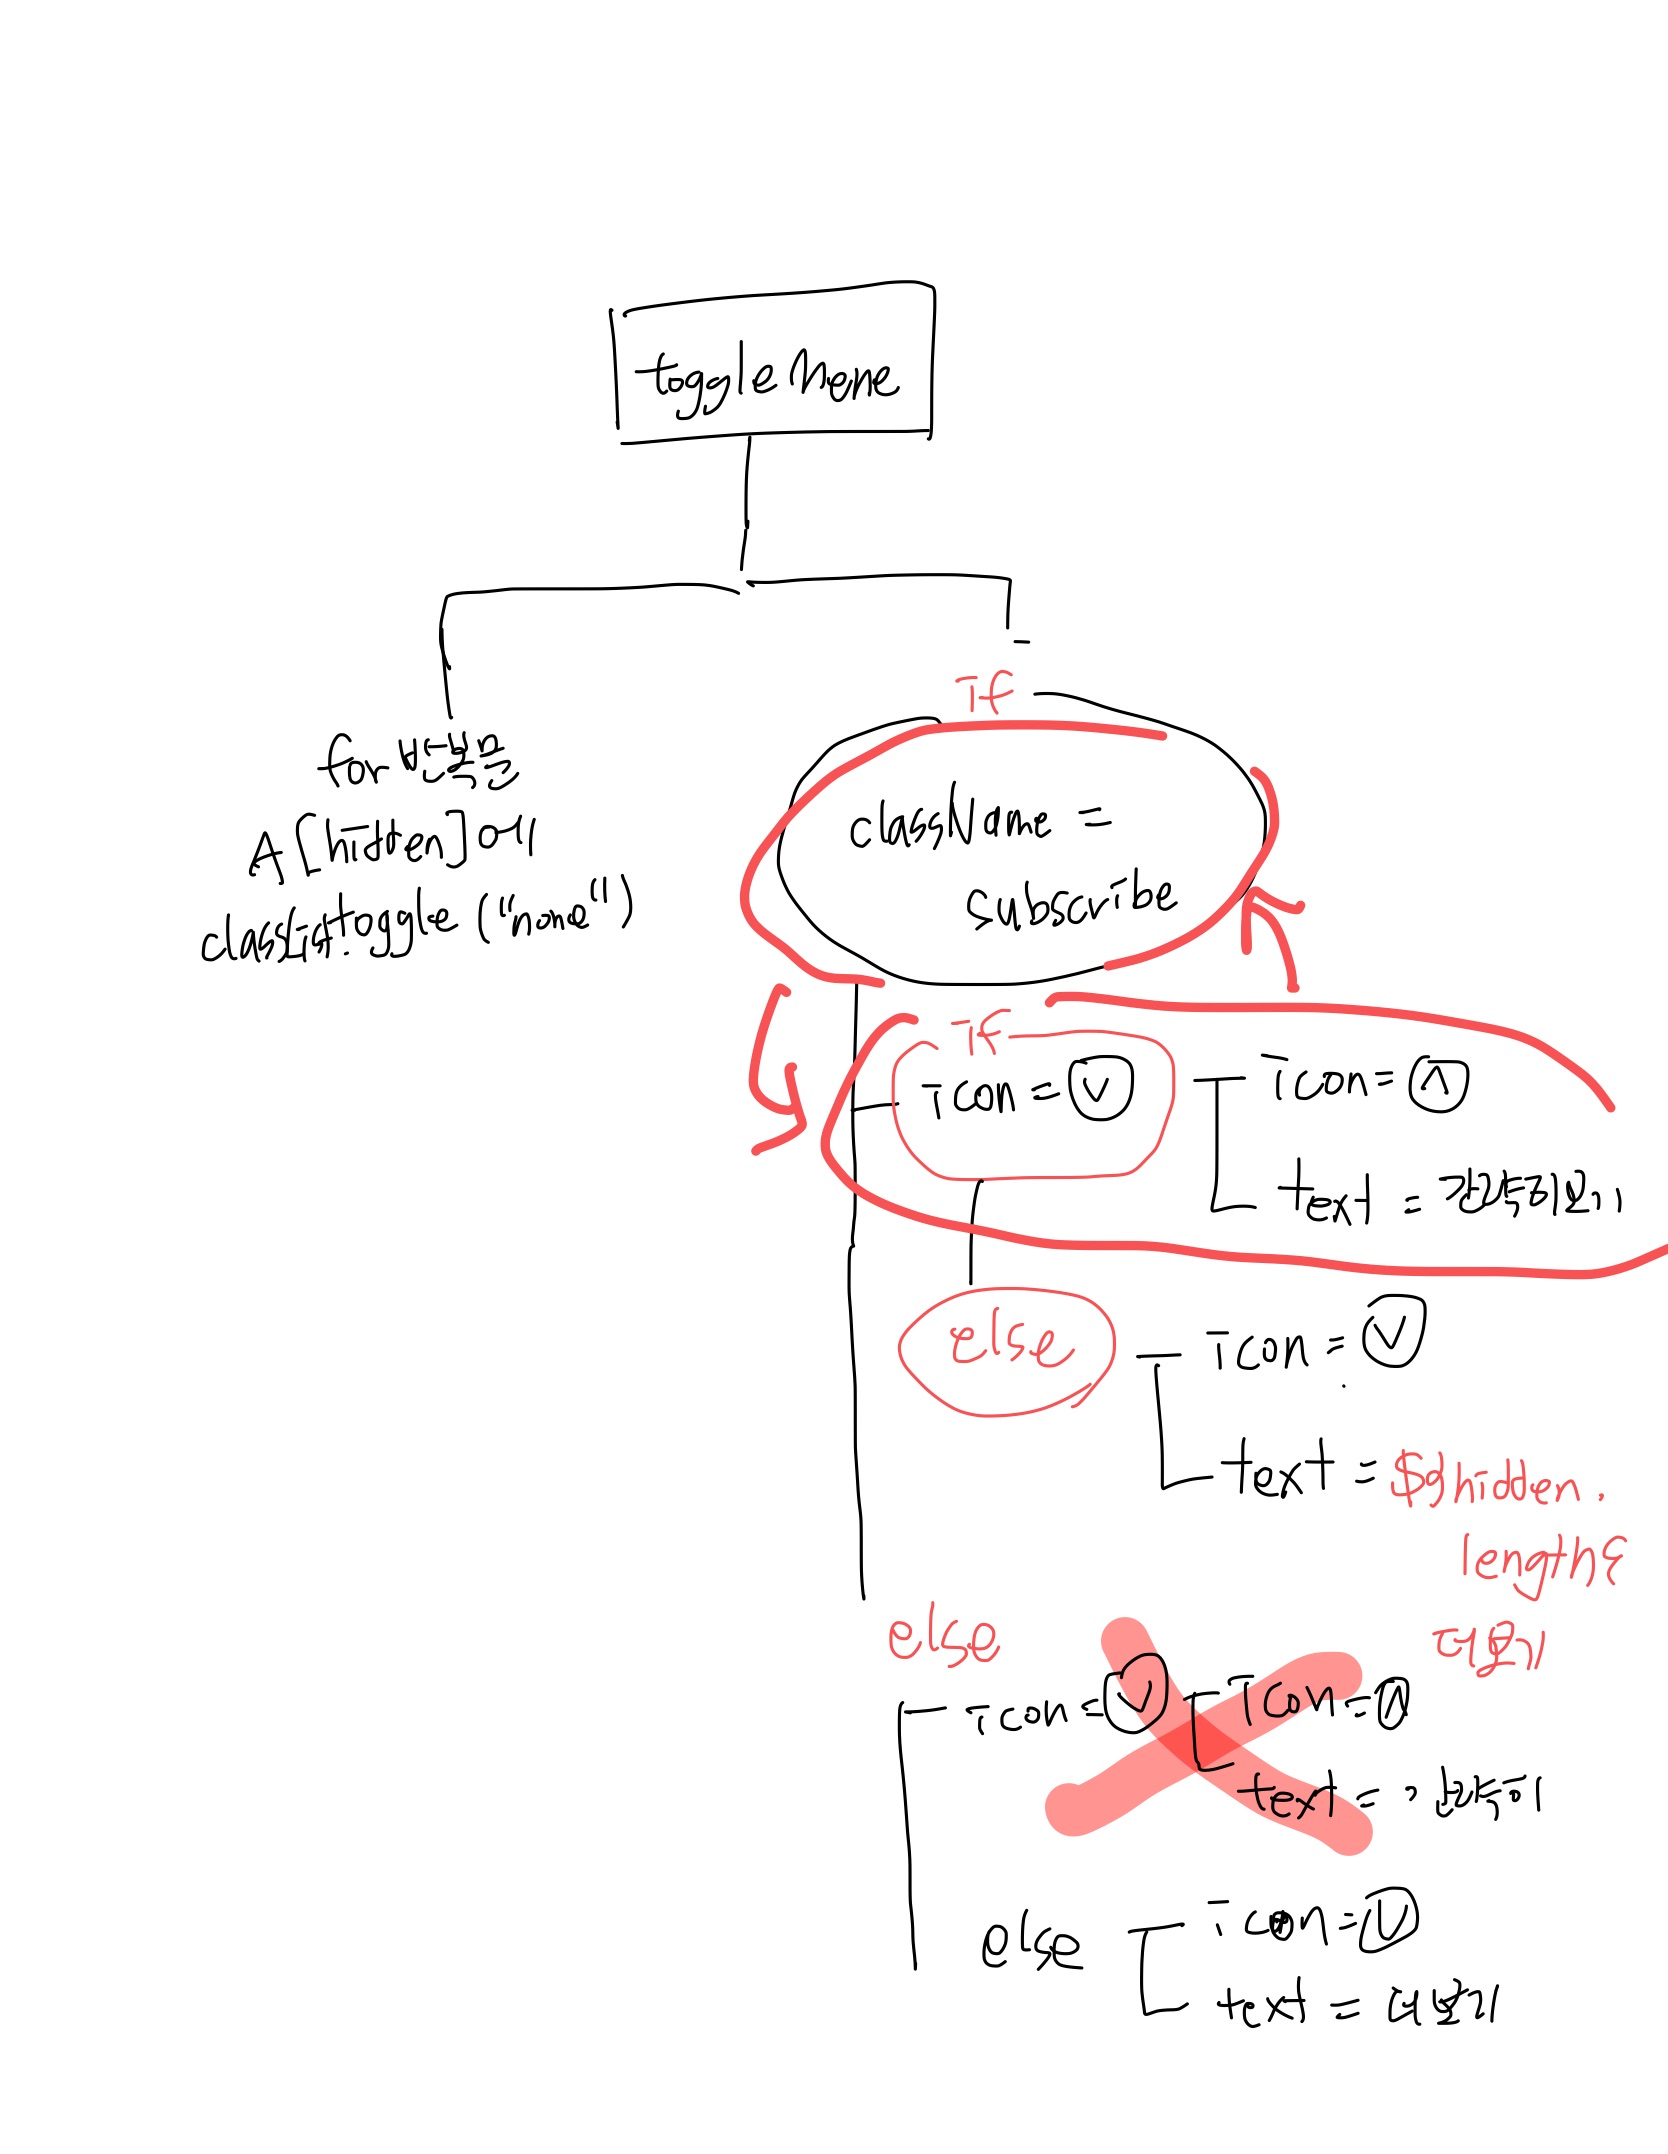 toggle Mene
for 반복문
A[hidden]에
classList.toggle ("none")
if
className =
subscribe
if
icon = ∨
icon = ∧
text = 간략히보기
else
icon = ∨
text = $}hidden.
length{
더보기
else
icon = ∨
icon = ∧
text = 간략히
else
icon = ∨
text = 더보기